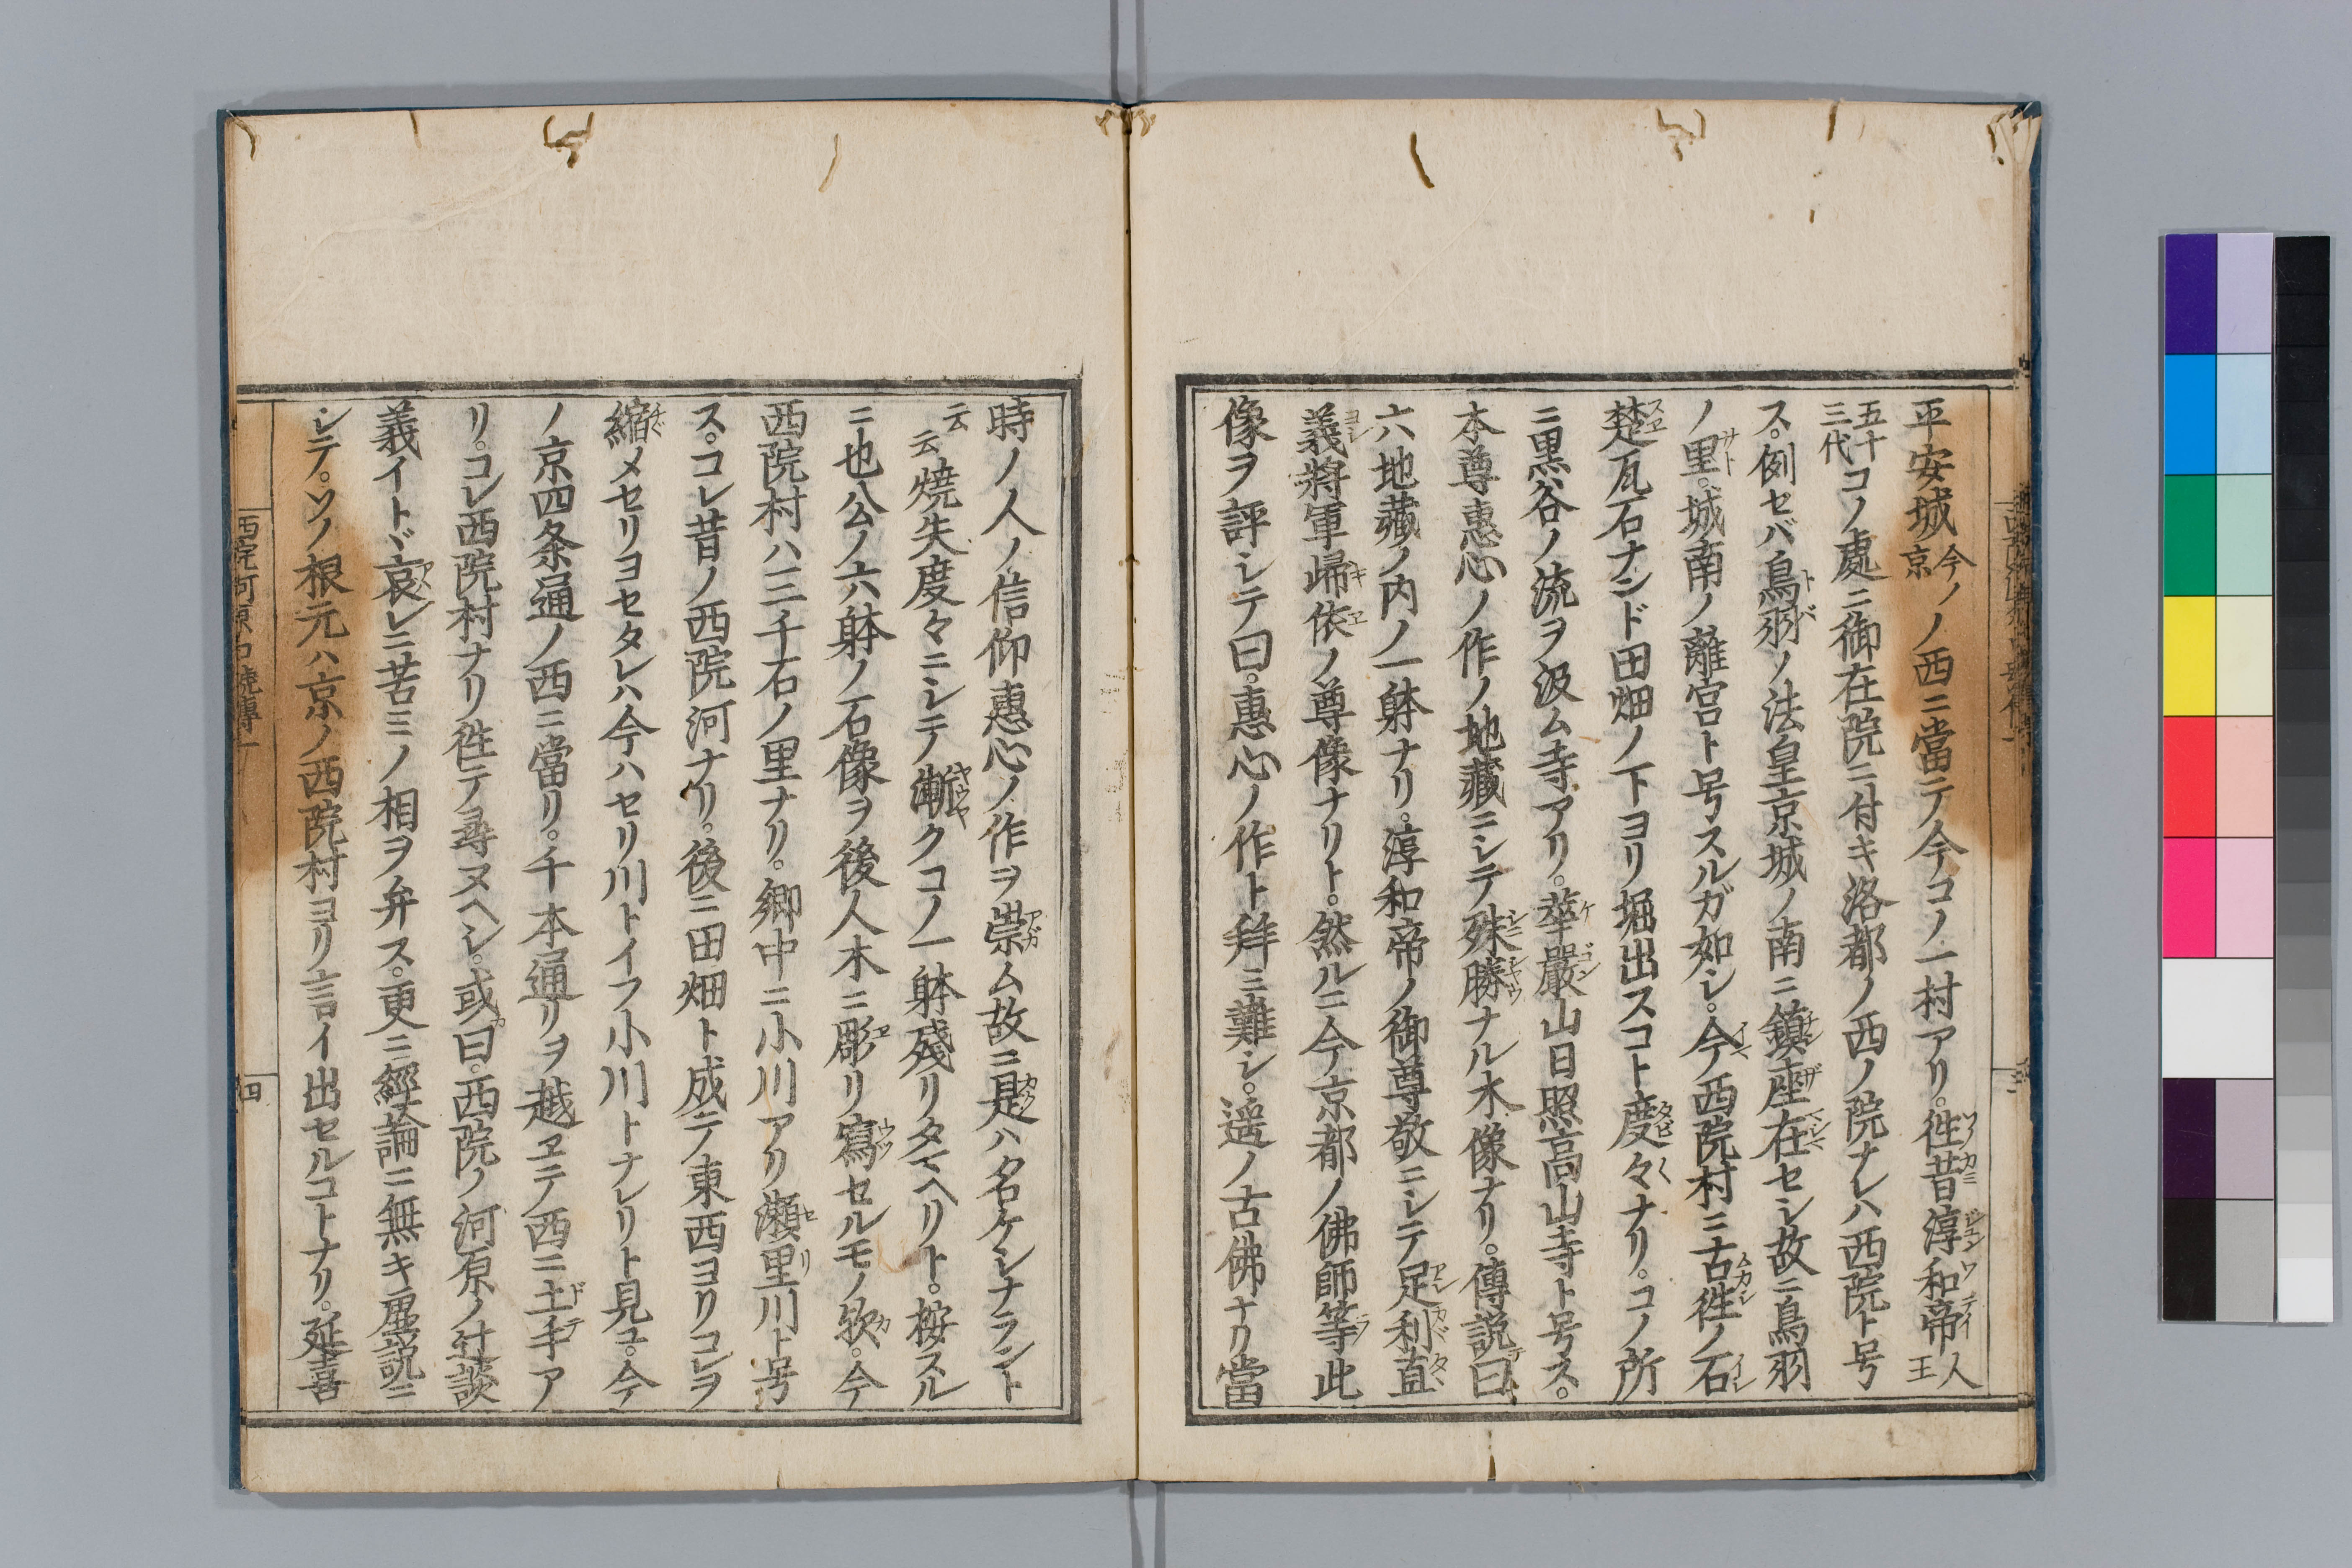 平安城今ノ京ノ西ニ當テ今コノ一村アリ。徃昔淳和帝人王
五十三代コノ處ニ御在院ニ付キ洛都ノ西ノ院ナレハ西院ト号
ス。例セバ鳥羽ノ法皇京城ノ南ニ鎮座在セシ故ニ鳥羽
ノ里。城南ノ離宮ト号スルガ如シ。今マ西院村ニ古徃ノ石
楚瓦石ナンド田畑ノ下ヨリ堀出スコト度々ナリ。コノ所
ニ黒谷ノ流ヲ汲ム寺アリ。華嚴山日照高山寺ト号ス。
本尊惠心ノ作ノ地藏ニシテ殊勝ナル木像ナリ。傳説曰
六地藏ノ内ノ一躰ナリ。淳和帝ノ御尊敬ニシテ足利直
義將軍歸依ノ尊像ナリト。然ルニ今京都ノ佛師等此
像ヲ評シテ曰。惠心ノ作ト拜ミ難シ。遥ノ古佛ナリ當
時ノ人ノ信仰惠心ノ作ヲ崇ム故ニ是ハ名ケシナラント
云云焼失度々ニシテ漸クコノ一躰殘リタマヘリト。按スル
ニ也公ノ六躰ノ石像ヲ後人木ニ彫リ寫セルモノ欤。今
西院村ハ三千石ノ里ナリ。郷中ニ小川アリ瀬里川ト号
ス。コレ昔ノ西院河ナリ。後ニ田畑ト成テ東西ヨリコレヲ
縮メセリヨセタレハ今ハセリ川トイフ小川トナレリト見ユ。今
ノ京四条通ノ西ニ當リ。千本通リヲ越ヱテ西ニ土手ア
リ。コレ西院村ナリ徃テ尋ヌヘシ。或曰。西院ノ河原ノ辻談
義イトヾ哀レニ苦ミノ相ヲ弁ス。更ニ經論ニ無キ虚説ニ
シテ。ソノ根元ハ京ノ西院村ヨリ言イ出セルコトナリ。延喜
西院河原口號傳一
四